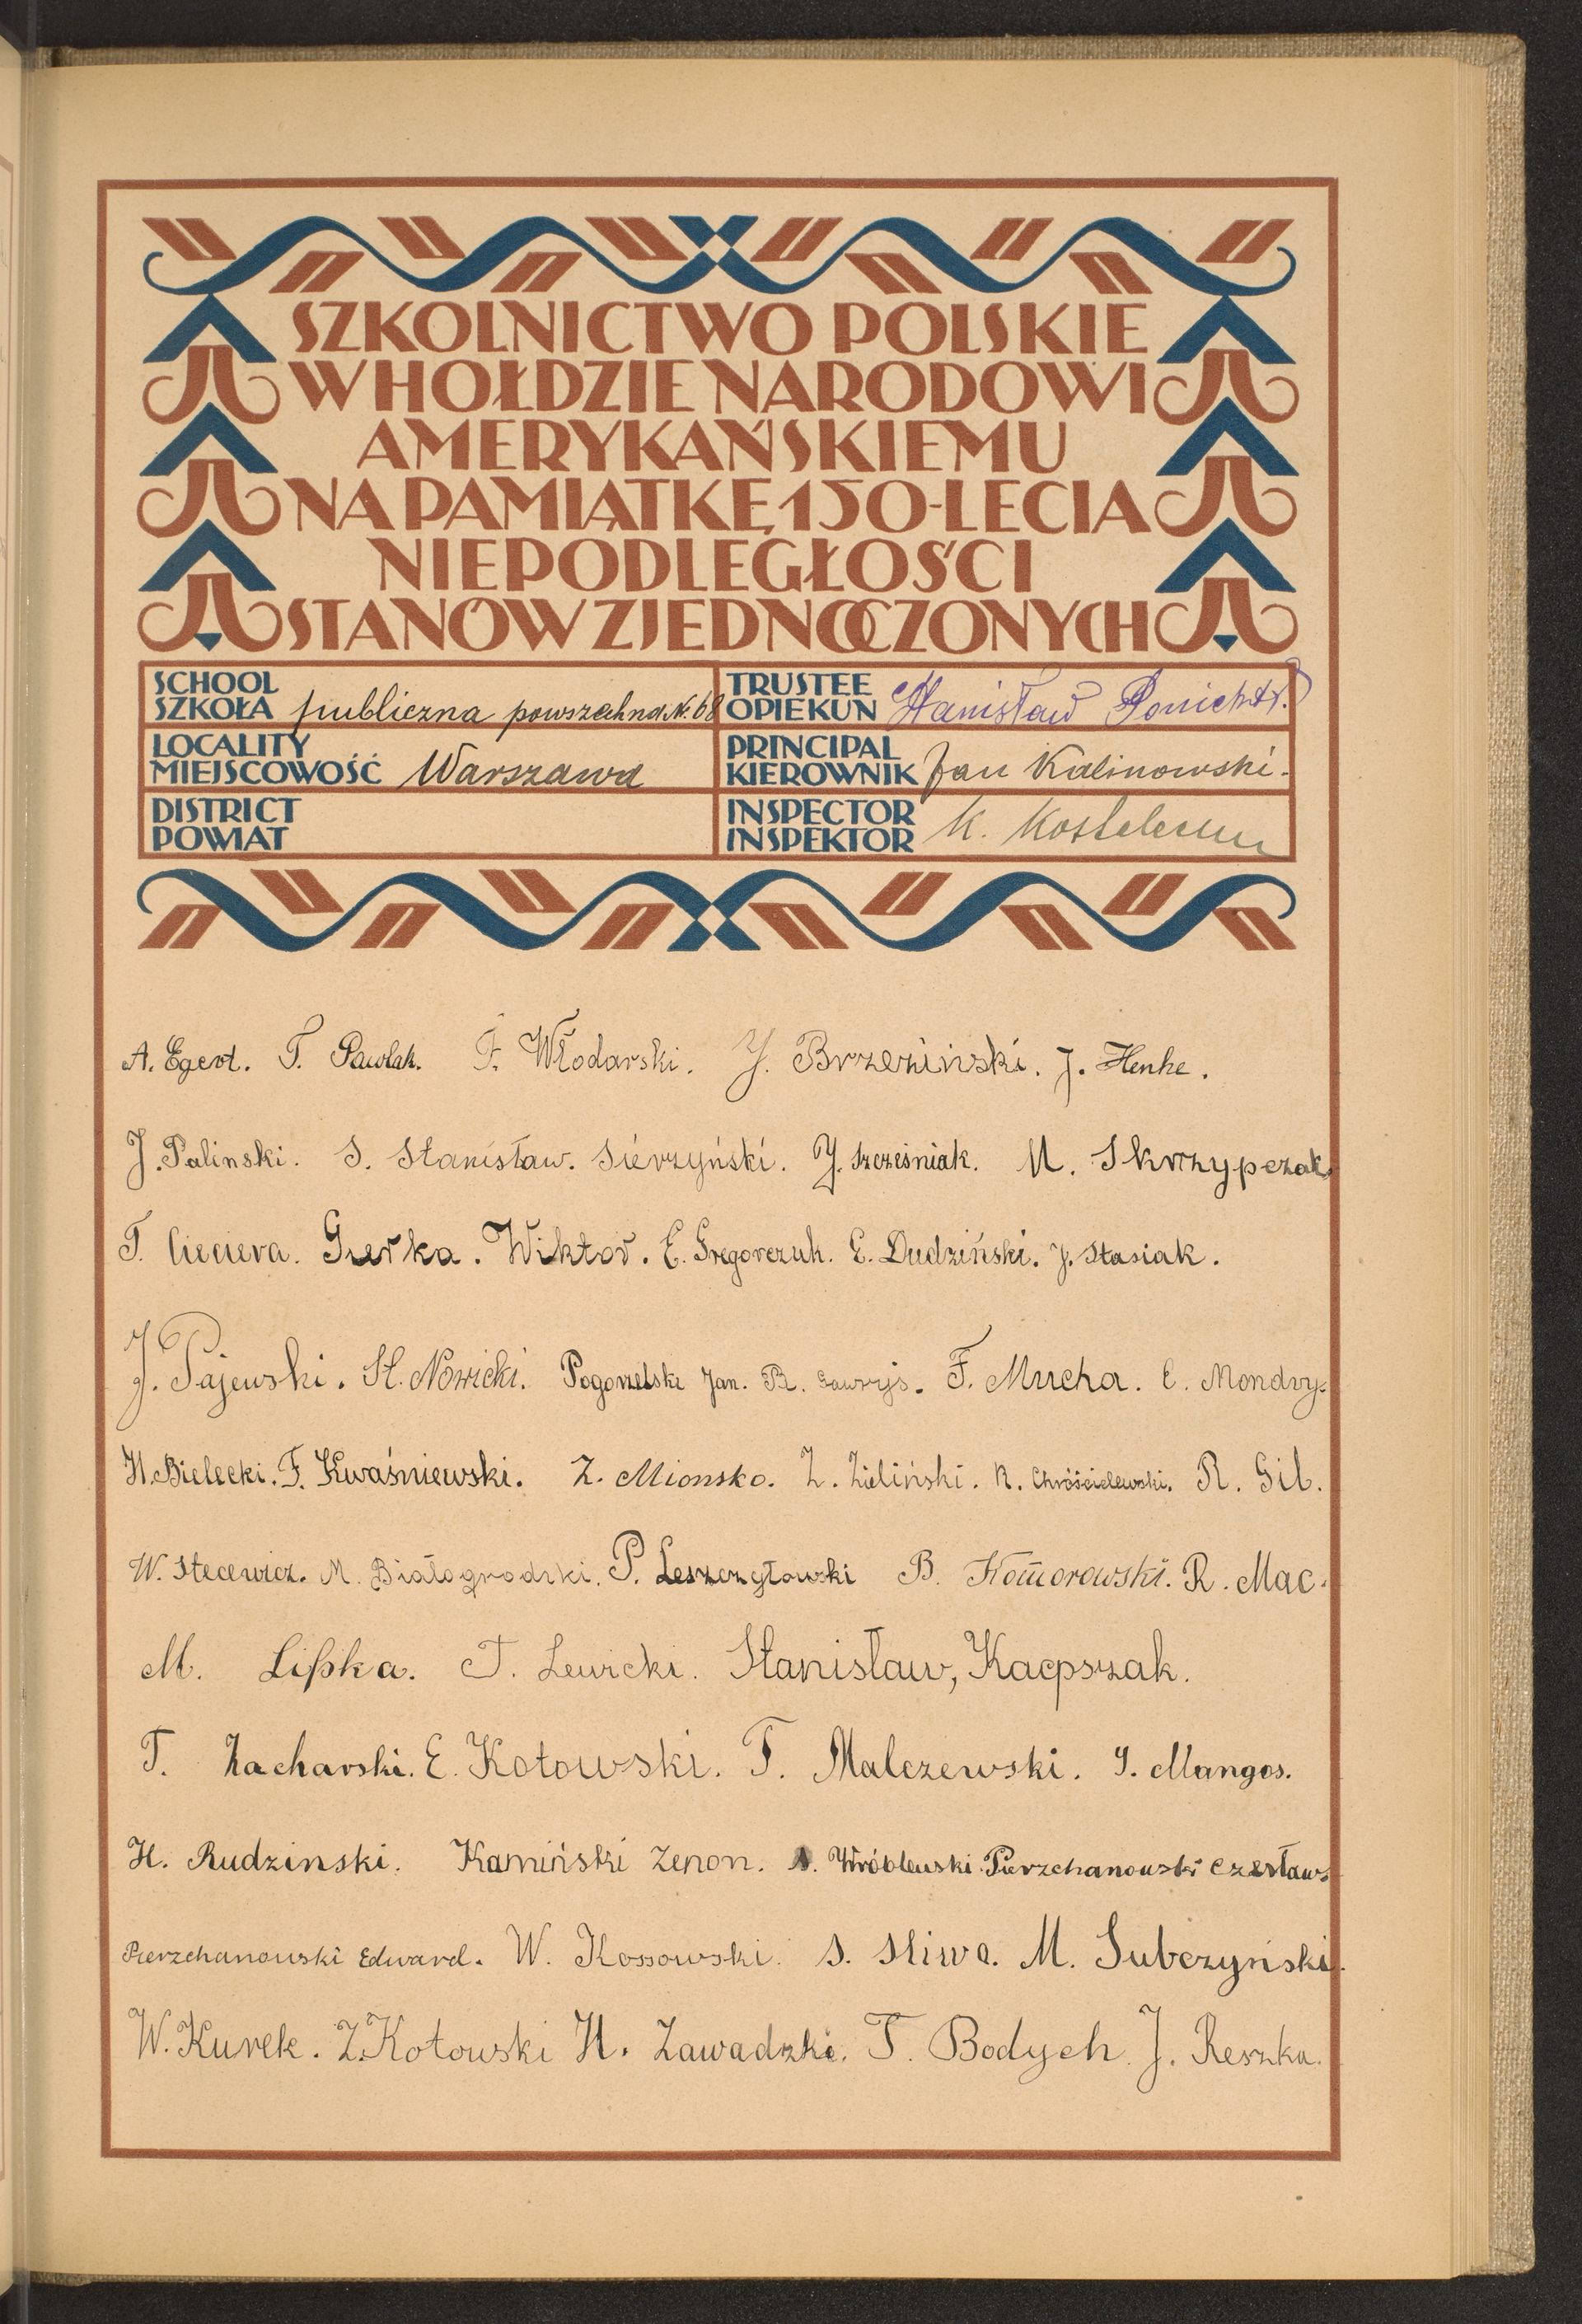 SZKOLNICTWO POLSKIE
W HOŁDZIE NARODOWI
AMERYKAŃSKIEMU
NA PAMIĄTKĘ 150-LECIA
NIEPODLEGŁOŚCI
STANÓW ZJEDNOCZONYCH
SCHOOL
SZKOŁA publiczna powszechna N. 68
TRUSTEE
OPIEKUN Stanisław
LOCALITY
MIEJSCOWOŚĆ Warszawa
PRINCIPAL
KIEROWNIK Jan Kalinowski.
DISTRICT
POWIAT
INSPECTOR
INSPEKTOR K.
A. Egert. T. Pawlak. F. Włodarski. J. Brzeziński. J. Henke.
J. Palinski. S. Stanisław. Sierzyński. J. Szcześniak. M. Skrzypczak.
T. Cieciera. Gierka. Wiktor. E. Gregorczuk. E. Dudziński. J. Stasiak.
J. Pajewski. St. Nowicki. Pogorzelski Jan. R. Gawryś. F. Mucha. E. Mondry.
H. Bielecki. F. Kwaśniewski. Z. Mionsko. Z. Zieliński. R. Chróścielewski. R. Gil.
W. Stecewicz. M. Białogrodzki. P. Leszczyłowski B. Komorowski. R. Mac.
M. Lipka. T. Lewicki. Stanisław, Kacpszak.
T. Zacharski. E. Kotowski. T. Malczewski. J. Mangos.
H. Rudzinski. Kamiński Zenon. S. Wróblewski. Pierzchanowski Czesław.
Pierzchanowski Edward. W. Kossowski. S. Sliwa. M. Subczyński.
W. Kurek. Z. Kotowski H. Zawadzki. T. Bodych. J. Reszka.